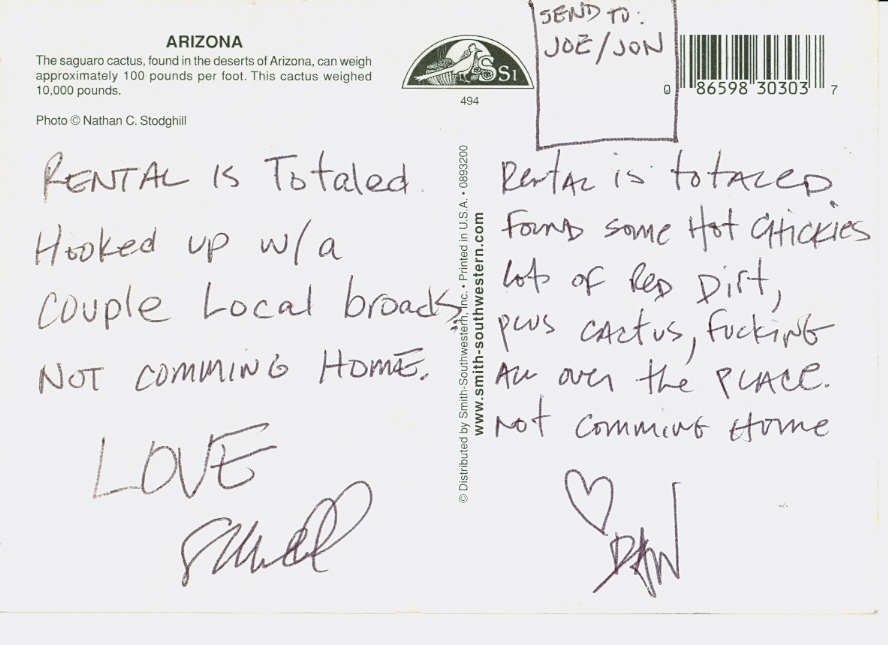 ARIZONA
The saguaro cactus, found in the deserts of Arizona, can weigh
approximately 100 pounds per foot. This cactus weighed
10,000 pounds.
Photo © Nathan C. Stodghill
SSI
494
SEND TO:
JOE/JON
0 86598 30303 7
RENTAL IS Totaled.
Hooked up w/a
couple Local broads
NOT COMMING HOME.
LOVE
© Distributed by Smith-Southwestern, Inc. • Printed in U.S.A. • 0893200
www.smith-southwestern.com
RentAL is totALED
Found some Hot CHickies
Lots of RED Dirt,
pLus CACtus, FucKING
ALL over the PLACE.
Not comming Home
DAN